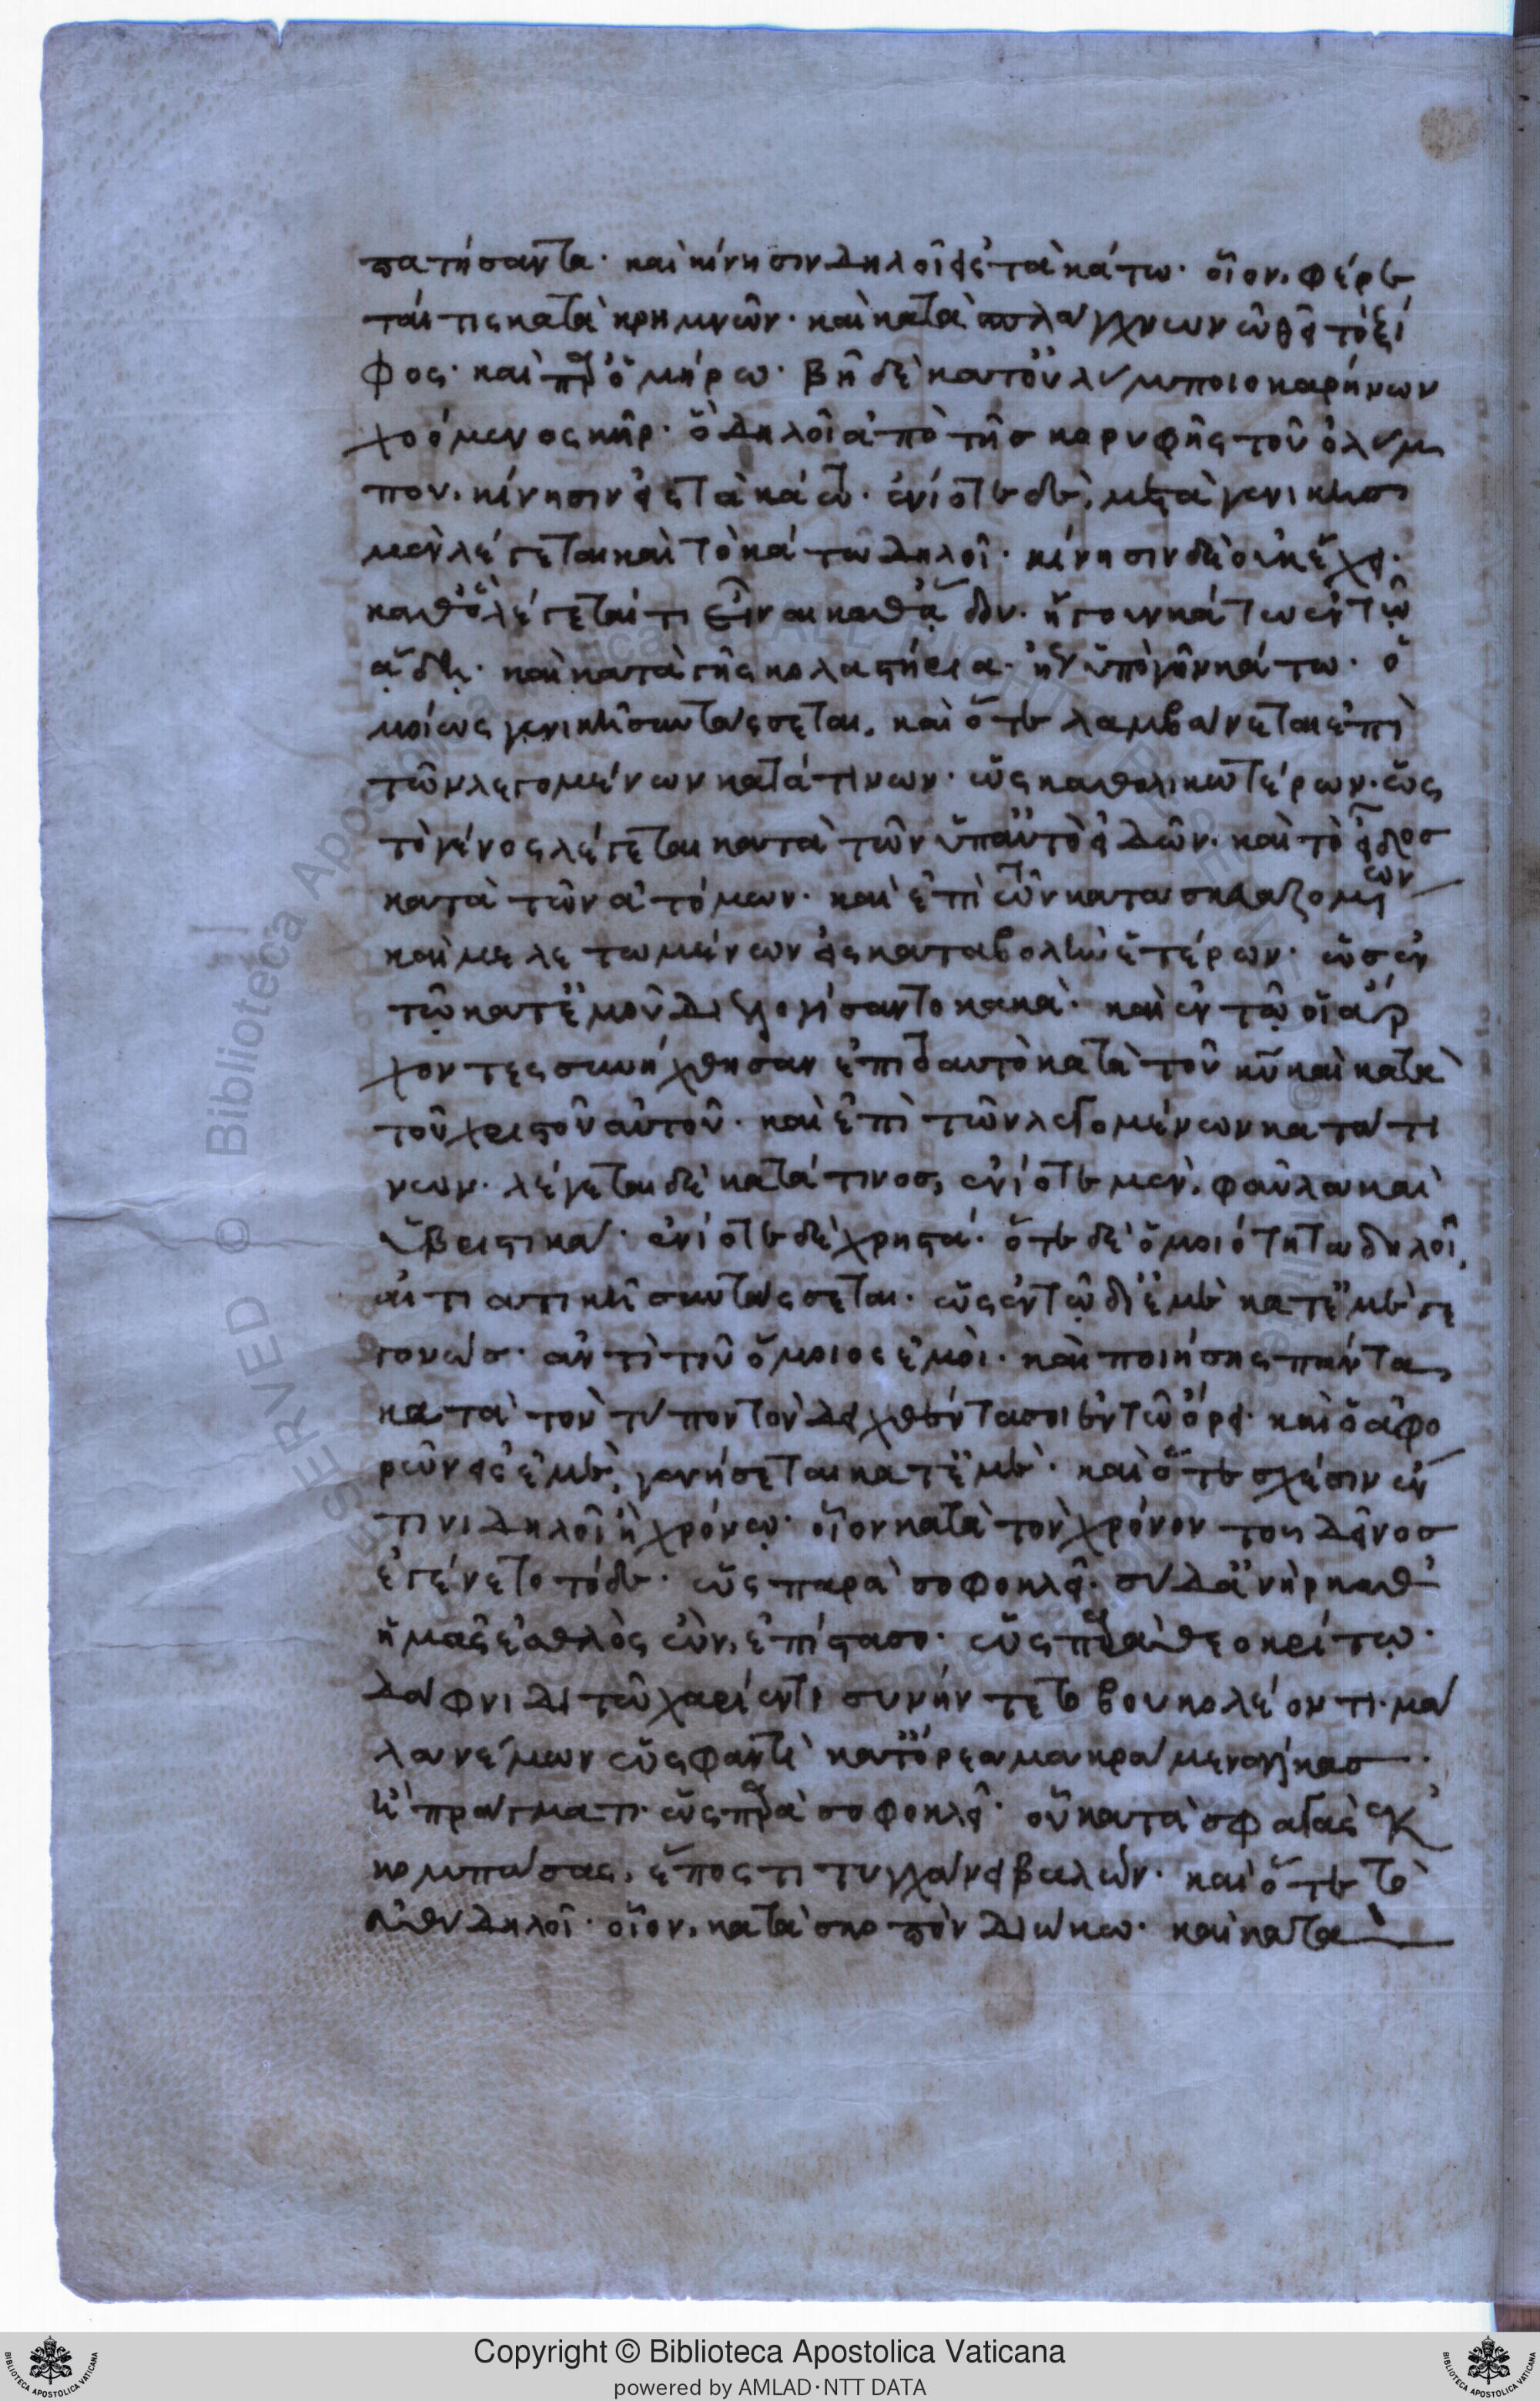 πατήσαντα· καὶ κίνησιν δηλοῖ εἰς τὰ κάτω· οἷον, φέρε
ταί τις κατὰ κρημνῶν· καὶ κατὰ σπλάγχνων ὠθεῖ τὸ ξί
φος· καὶ παρ' ὁμήρω· βῆ δὲ κατ' οὐλύμποιο καρήνων
χοόμενος κῆρ· ὃ δηλοῖ ἀπὸ τῆς κορυφῆς τοῦ ὀλύμ
που, κίνησιν εἰς τὰ κάτω· ἐνίοτε δὲ, μετὰ γενικῆς
μὲν λέγεται καὶ τὸ κάτω δηλοῖ· κίνησιν δὲ οὐκ ἔχει·
καθὸ λέγεταί τι εἶναι καθ' ᾅδου· ἤγουν κάτω ἐν τῶ
ᾅδη· καὶ κατὰ γῆς κολαστήρια· ἢ ὑπὸ γῆν κάτω· ὁ
μοίως γενικῆ συντάσσεται, καὶ ὅτε λαμβάνεται ἐπὶ
τῶν λεγομένων κατά τινων· ὡς καθολικωτέρων· ὡς
τὸ γένος λέγεται κατὰ τῶν ὑπ' αὐτὸ εἰδῶν· καὶ τὸ εἶδος
κατὰ τῶν ἀτόμων· καὶ ἐπὶ τῶν κατασκευαζομένων
καὶ μελετωμένων εἰς καταβολὴν ἑτέρων· ὡς ἐν
τῶ κατ' ἐμοῦ διελογίσαντο κακά· καὶ ἐν τῶ οἱ ἄρ
χοντες συνήχθησαν ἐπιτοαυτὸ κατὰ τοῦ κυ καὶ κατὰ
τοῦ χριστοῦ αὐτοῦ· καὶ ἐπὶ τῶν λεγομένων κατά τι
νων· λέγεται δὲ κατά τινος, ἐνίοτε μὲν, φαῦλα καὶ
ὑβριστικά· ἐνίοτε δὲ χρηστά· ὅτε δὲ ὁμοιότητα δηλοῖ,
αἰτιατικῆ συντάσσεται· ὡς ἐν τῶ δι' ἐμὲ κατ' ἐμὲ γε
γονώς· ἀντὶ τοῦ ὅμοιος ἐμοὶ· καὶ ποιήσης πάντα
κατὰ τὸν τύπον τὸν δειχθέντα σοι ἐν τῶ ὄρει· καὶ ὁ ἀφο
ρῶν εἰς ἐμὲ, γενήσεται κατ' ἐμὲ· καὶ ὅτε σχέσιν ἐν
τινι δηλοῖ ἢ χρόνω· οἷον κατὰ τὸν χρόνον τοῦ δεῖνος
ἐγένετο τόδε· ὡς παρὰ σοφοκλεῖ· σὺ δ' ἀνὴρ καθ'
ἡμᾶς ἐσθλὸς ὢν, ἐπίστασο· ὡς παρὰ θεοκρίτω·
δάφνιδι τῶ χαρίεντι συνήντετο βουκολέοντι· μᾶ
λα νέμων ὡς φαντὶ κατ' ὄρεα μακρὰ μενάλκας·
ἢ πράγματι· ὡς παρὰ σοφοκλεῖ· οὐ κατὰ σφαγὰς ἐκ
κομπάσας, ἔπος τι τυγχάνει βαλών· καὶ ὅτε τὸ
εὐθὺ δηλοῖ· οἷον, κατὰ σκοπὸν διώκω· καὶ κατὰ
Copyright © Biblioteca Apostolica Vaticana
powered by AMLAD·NTT DATA